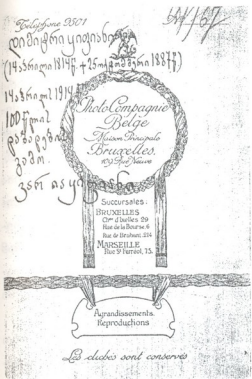 Telephone 9501
დიმიტრი ყიფიანი
(14 აპრილი 1814 წ. + 25 ოქტომბერი 1887 წ.)
14 აპრილი 1914 წ.
100 წლის
დაბადების
გამო.
Photo Compagnie
Belge
Maison Principale
Bruxelles.
109 Rue Neuve
Succursales:
BRUXELLES
Chée d'Ixelles 29
Rue de la Bourse 6
Rue de Brabant
MARSEILLE
Rue St Ferréol, 73.
Agrandissements
Reproductions
Les clichés sont conservés